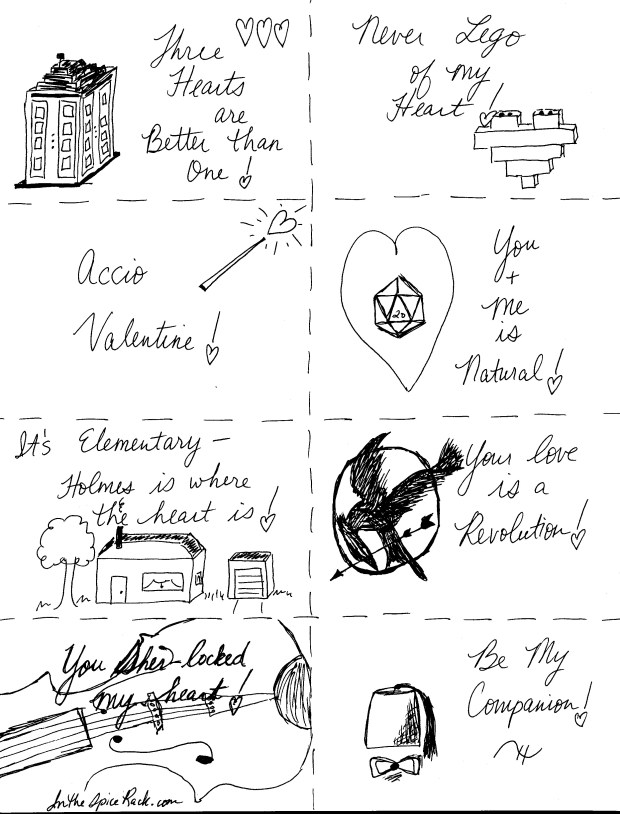 Three
Hearts
are
Better than
One!
Never Lego
of my
Heart!
Accio
Valentine!
20
You
+
me
is
Natural!
It's Elementary -
Holmes is where
the heart is!
Your love
is a
Revolution!
You Sher-locked
my heart!
InTheSpiceRack.com
Be My
Companion!